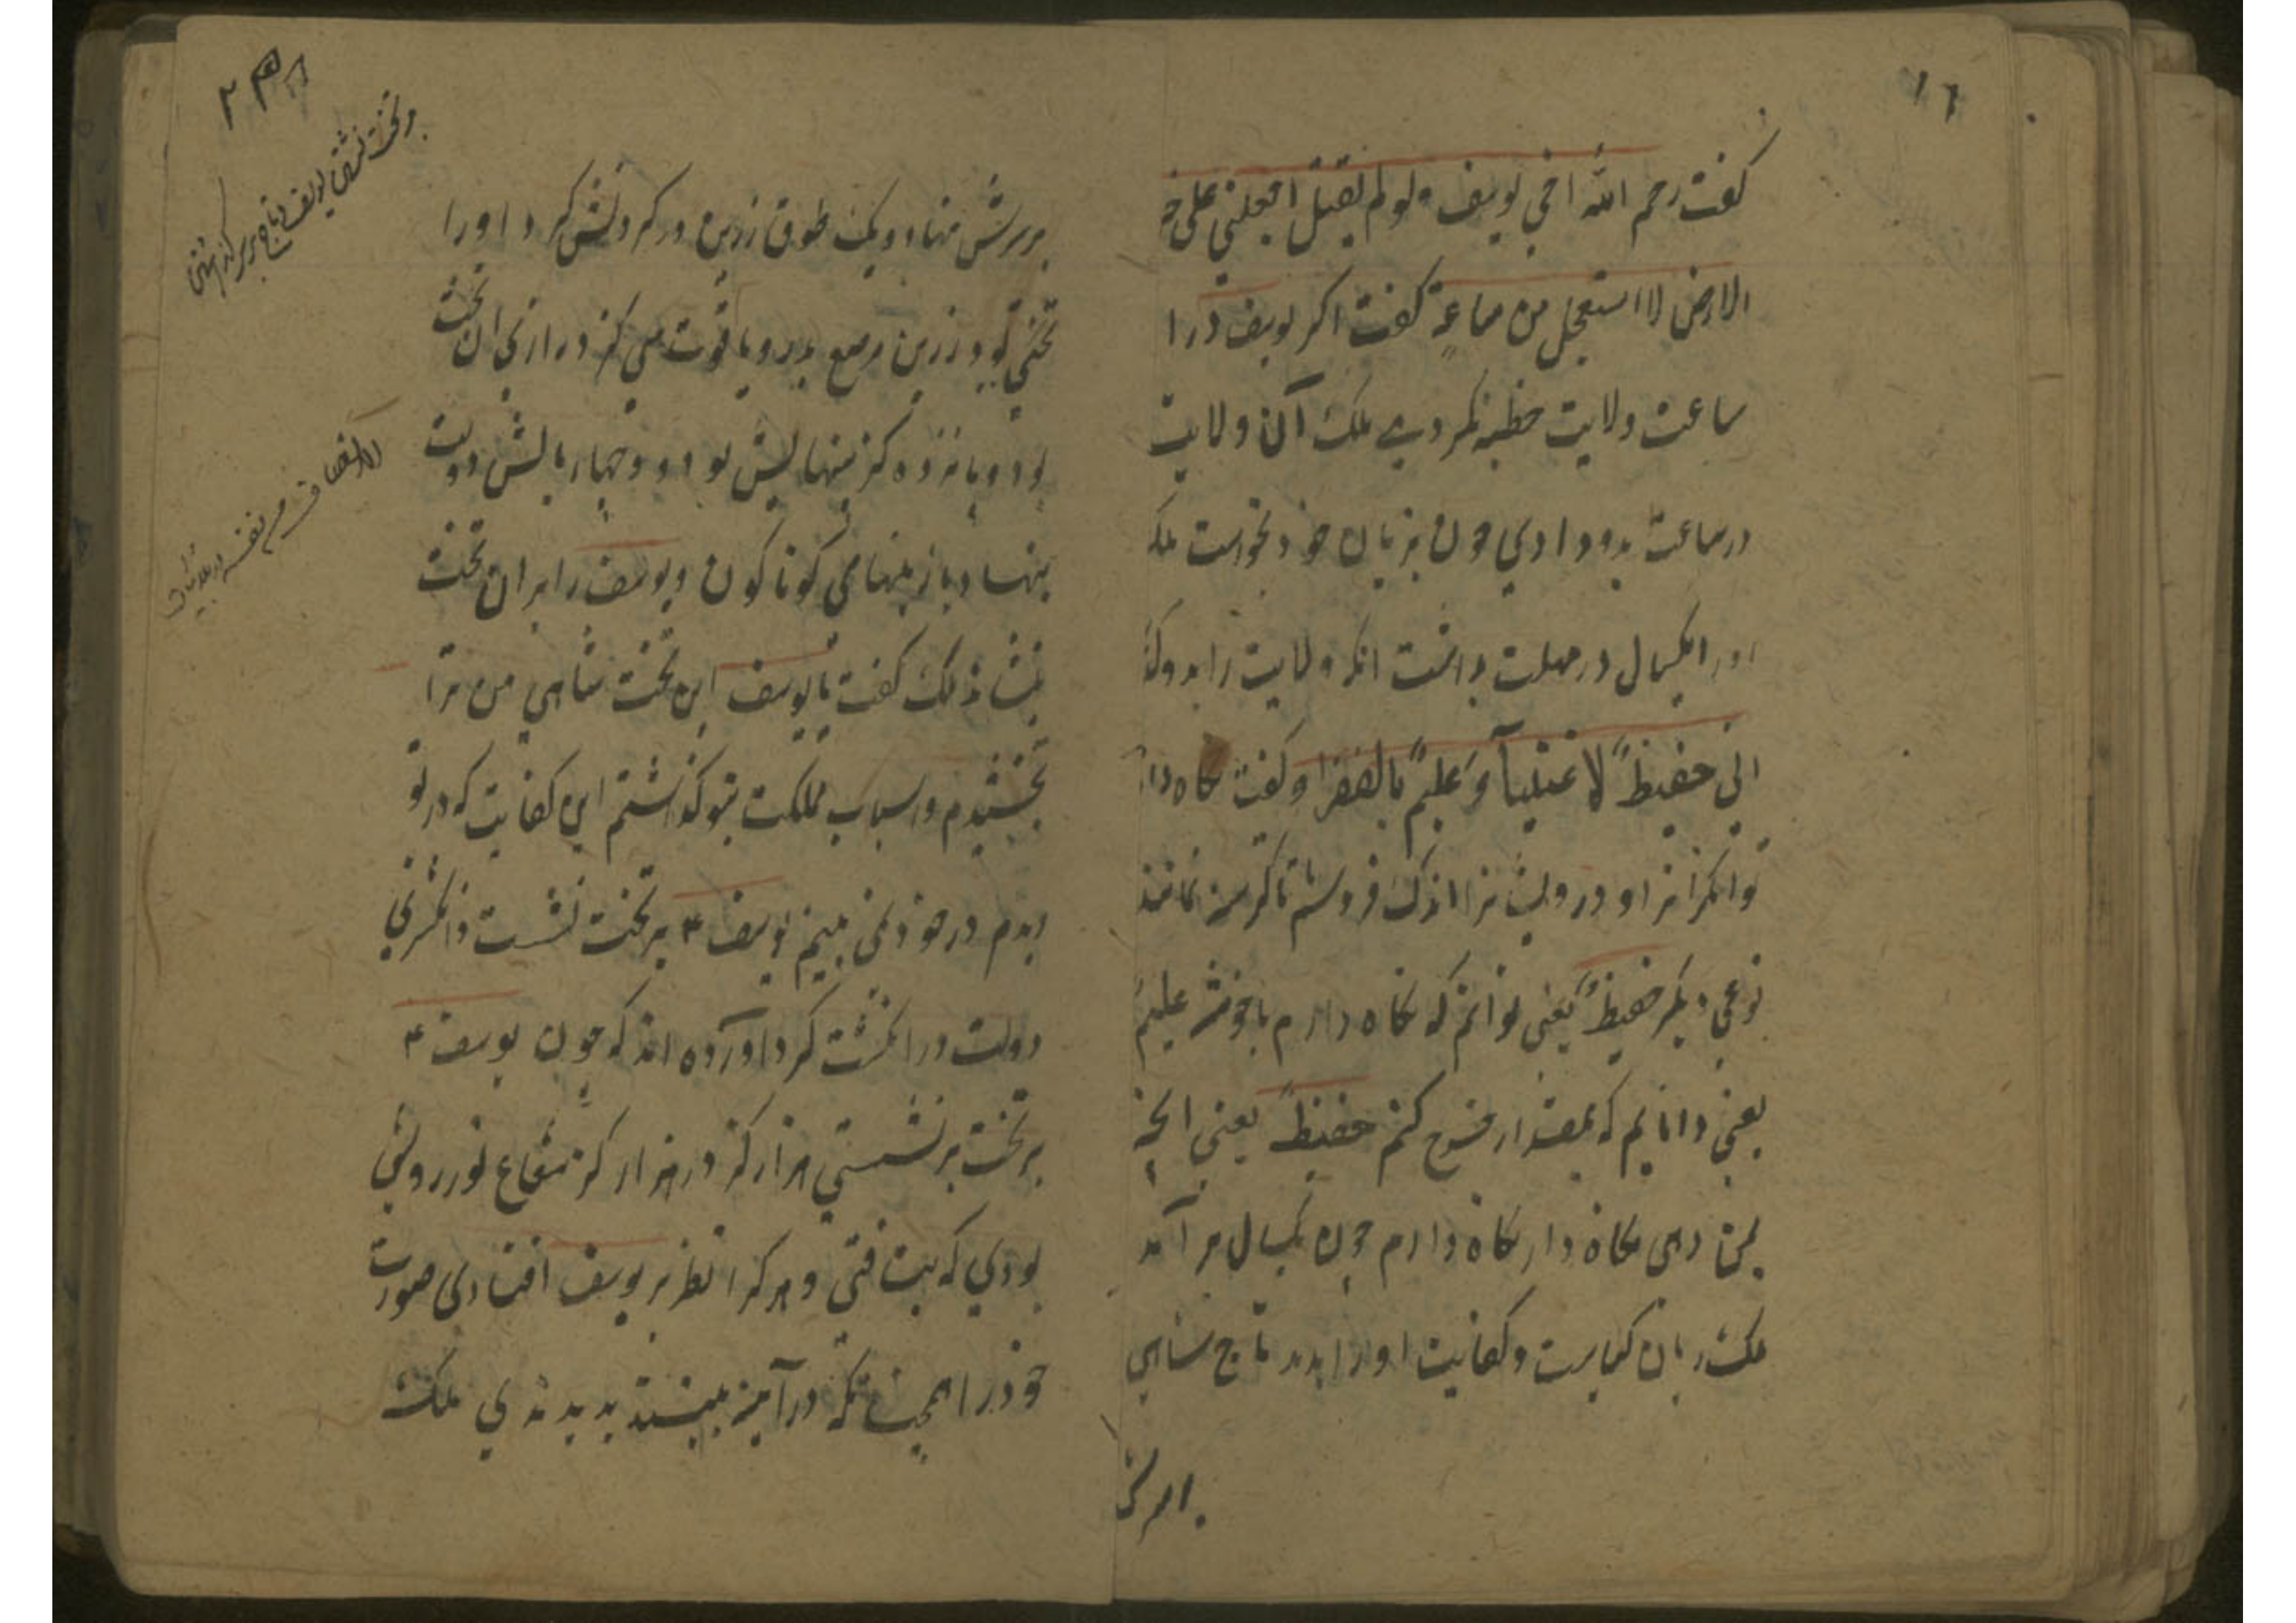 ۱۶
کفت رحم الله اخی یوسف و لو لم یقل اجعلنی علی خ
الارض لا استعجل من ساعة کفت اکر یوسف درا
ساعت ولایت خطبه نکردی ملک آن ولایت
در ساعت بدو دادی چون بزبان خود بخواست ملک
اورا یکسال در مهلت بداشت انکه ولایت را بدو
انی حفیظ لاغنیآ و علیم بالفقرا و کفت نکاه دار
توانکرانرا و درویشانرا اندک فروشم تا کرسنه نمانند
نوعی دیکر حفیظ یعنی توانم که نکاه دارم علیم
یعنی دانایم که بمقدار خرج کنم حفیظ یعنی انچه
بمن دهی نکاه دار نکاه دارم چون یکسال برآمد
ملک ریان و کفایت اورا بدید تاج شاهی
بر سرش
۲
برسرش نهاد و یک طوق زرین در کردنش کرد اورا
تختی بود زرین مرصع بدر و یاقوت سی کز درازی ان تخت
بود و پانزده کز پهنایش بود و چهار بالش دولت
بنهاد کوناکون و یوسف را بران تخت
بنشاند ملک کفت یا یوسف این تخت شاهی من ترا
بخشیدم و اسباب مملکت بتو کذاشتم این کفایت که در تو
دیدم در خود نمی بینم یوسف ع بر تخت نشست و انکشتری
دولت در انکشت کرد و آورده اند که چون یوسف ع
بر تخت برنشستی هزار کز در هزار کز شعاع نور رویش
بودی که می تافتی و هر کرا نظر بر یوسف افتادی صورت
خودرا همچنانکه در آینه بینند بدیدندی ملک
بر تخت نشستن یوسف و تاج بر سر